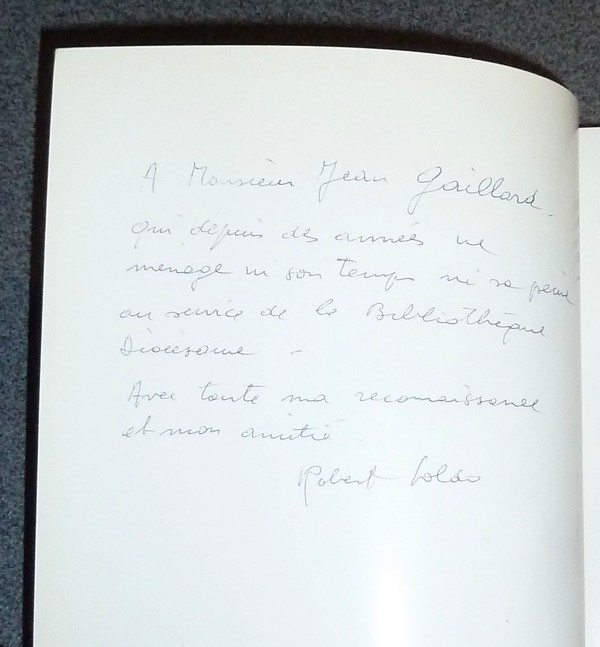 A Monsieur Jean Gaillard.
qui depuis des années ne
ménage ni son temps ni sa peine
au service de la Bibliothèque
Diocésaine -
Avec toute ma reconnaissance
et mon amitié
Robert